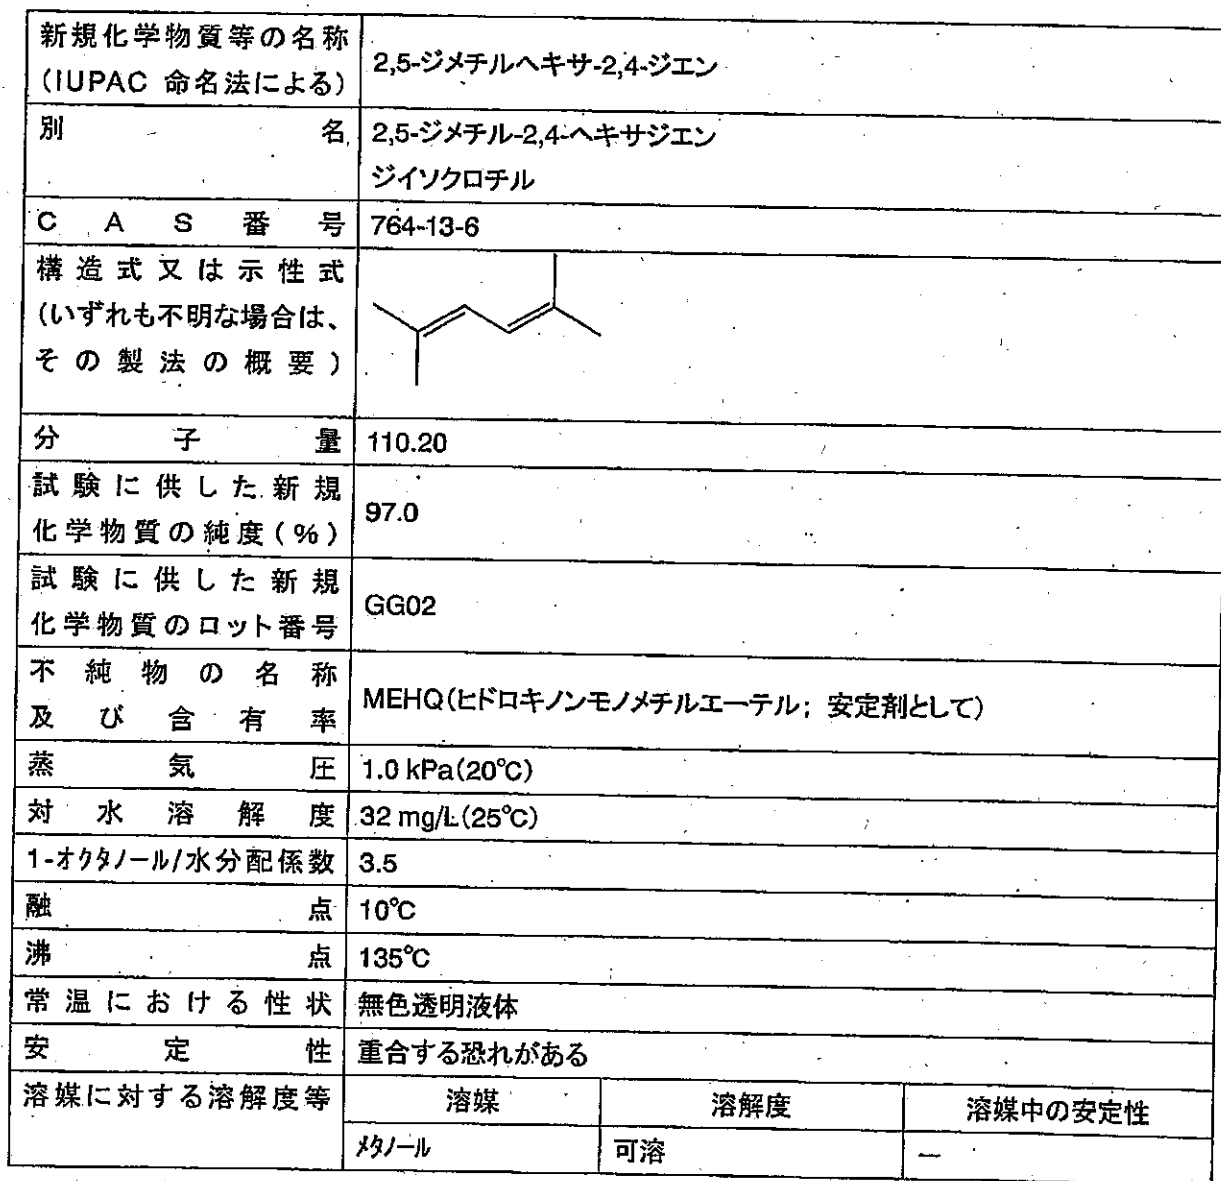 新規化学物質等の名称
(IUPAC 命名法による)
2,5-ジメチルヘキサ-2,4-ジエン
別名
2,5-ジメチル-2,4-ヘキサジエン
ジイソクロチル
CAS番号
764-13-6
構造式又は示性式
(いずれも不明な場合は、
その製法の概要)
分子量
110.20
試験に供した新規
化学物質の純度(%)
97.0
試験に供した新規
化学物質のロット番号
GG02
不純物の名称
及び含有率
MEHQ(ヒドロキノンモノメチルエーテル; 安定剤として)
蒸気圧
1.0 kPa(20℃)
対水溶解度
32 mg/L(25℃)
1-オクタノール/水分配係数
3.5
融点
10℃
沸点
135℃
常温における性状
無色透明液体
安定性
重合する恐れがある
溶媒に対する溶解度等
溶媒
溶解度
溶媒中の安定性
メタノール
可溶
—